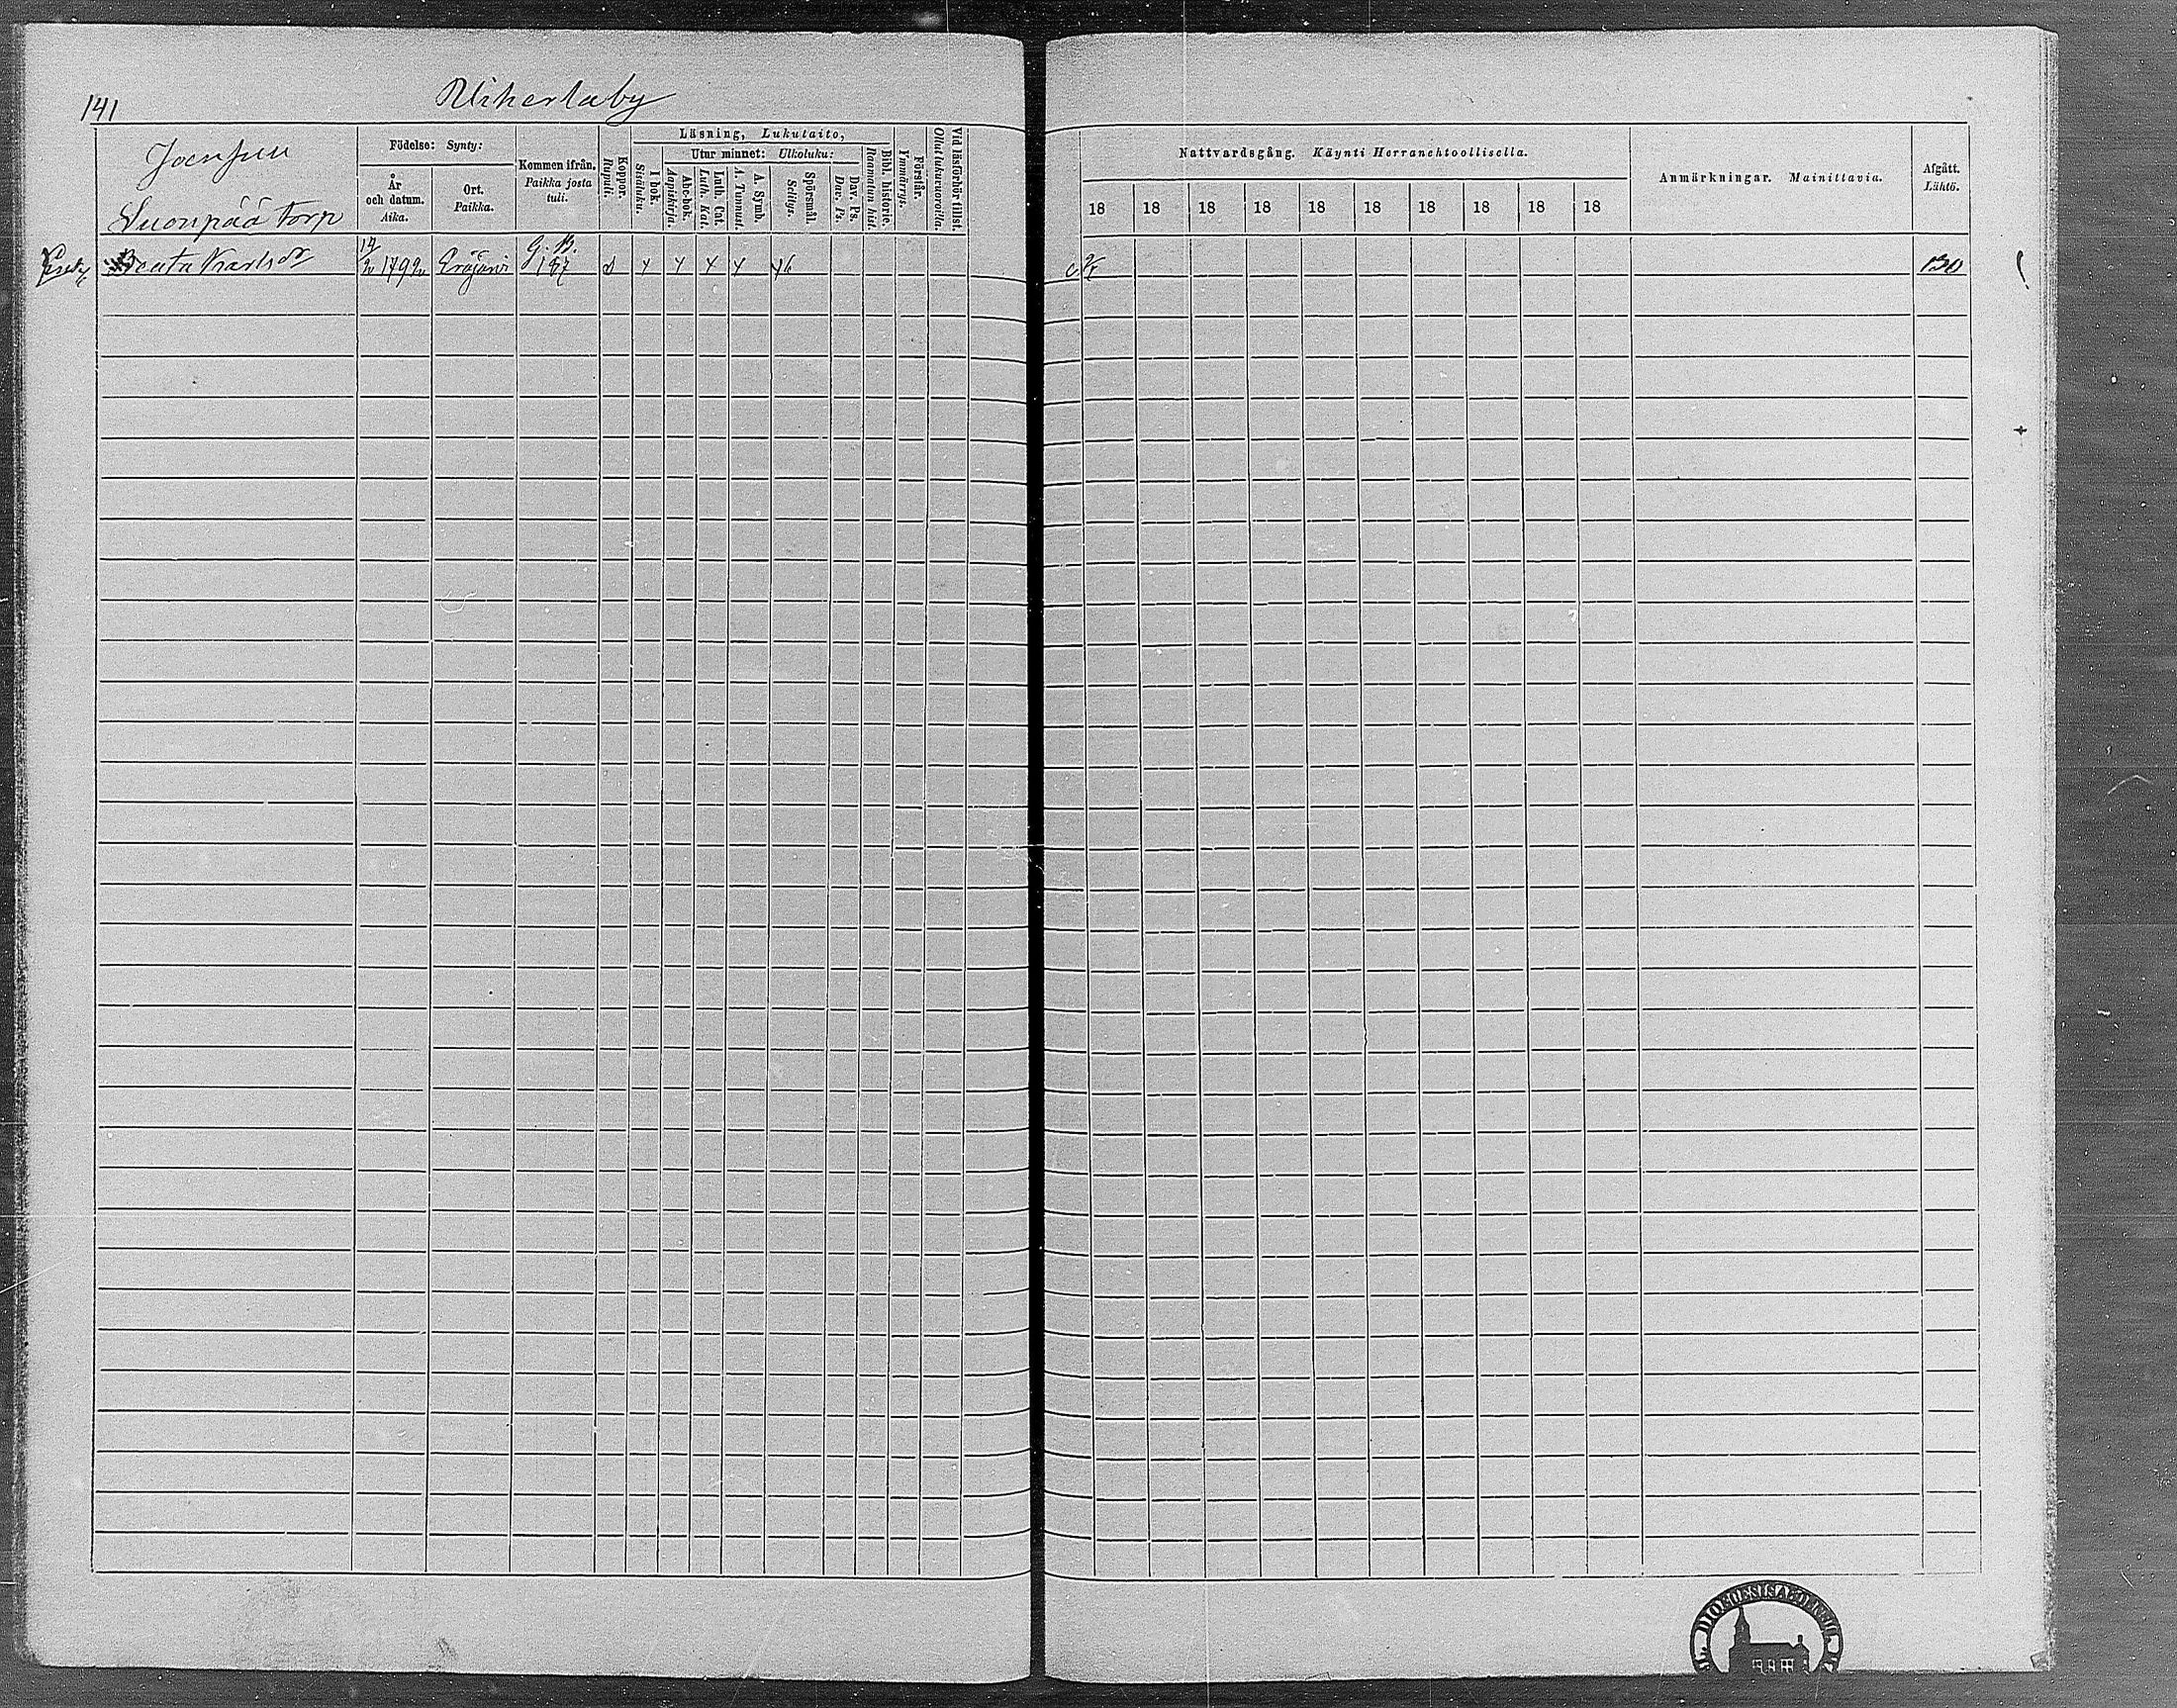 141
Joensuu
Luonpää torp
Födelse: Synty:
År och datum. Aika.
Ort. Paikka.
Kommen ifrån. Paikka josta tuli.
Koppor. Rupuli.
Läsning, Lukutaito,
I bok. Sisäluku.
Utur minnet: Ulkoluku:
Abc-bok. Aapiskirja.
Luth. Cat. Luth. Kat.
A. Symb. A. Tunnust.
Spörsmål. Selitys.
Dav. Ps. Dav. Ps.
Bibl. historie. Raamatun hist.
Förstår. Ymmärrys.
Vid läsförhör tillst. Ollut lukuvuoroilla.
Nattvardsgång. Käynti Herranehtoollisella.
18 18 18 18 18 18 18 18 18 18
Anmärkningar. Mainittavia.
Afgått. Lähtö.
Beata Karlsdr 1792 Eräjärvi G. B. 187 130